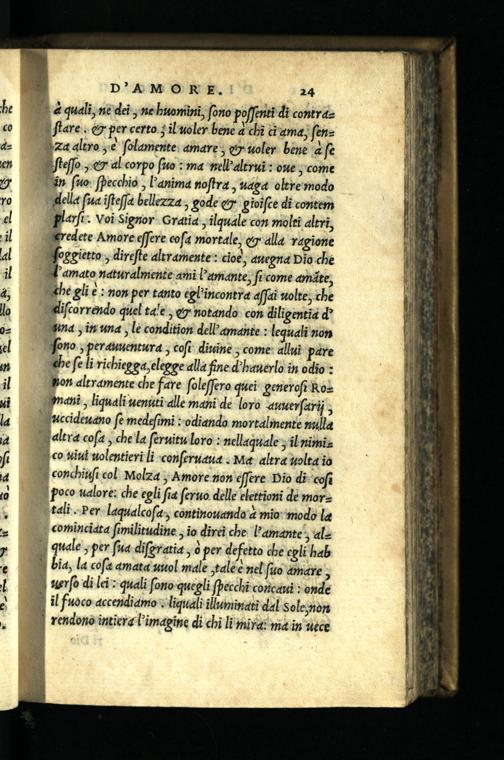 D'AMORE. 24
à quali, ne dei, ne huomini, sono possenti di contra-
stare. & per certo, il uoler bene à chi ci ama, sen-
za altro, è solamente amare, & uoler bene à se
stesso, & al corpo suo: ma nell'altrui: oue, come
in suo specchio, l'anima nostra, uaga oltre modo
della sua istessa bellezza, gode & gioisce di contem
plarsi. Voi Signor Gratia, ilquale con molti altri,
credete Amore essere cosa mortale, & alla ragione
soggietto, direste altramente: cioè, auegna Dio che
l'amato naturalmente ami l'amante, si come amãte,
che gli è: non per tanto egl'incontra assai uolte, che
discorrendo quel tale, & notando con diligentia d'
una, in una, le condition dell'amante: lequali non
sono, perauuentura, cosi diuine, come allui pare
che se li richiegga, elegge alla fine d'hauerlo in odio:
non altramente che fare solessero quei generosi Ro-
mani, liquali uenuti alle mani de loro auuersarij,
uccideuano se medesimi: odiando mortalmente nulla
altra cosa, che la seruitu loro: nellaquale, il nimi-
co uiui uolentieri li conseruaua. Ma altra uolta io
conchiusi col Molza, Amore non essere Dio di cosi
poco ualore: che egli sia seruo delle elettioni de mor-
tali. Per laqualcosa, continouando à mio modo la
cominciata similitudine, io direi che l'amante, al-
quale, per sua disgratia, ò per defetto che egli hab
bia, la cosa amata uuol male, tale è nel suo amare,
uerso di lei: quali sono quegli specchi concaui: onde
il fuoco accendiamo. liquali illuminati dal Sole, non
rendono intiera l'imagine di chi li mira: ma in uece